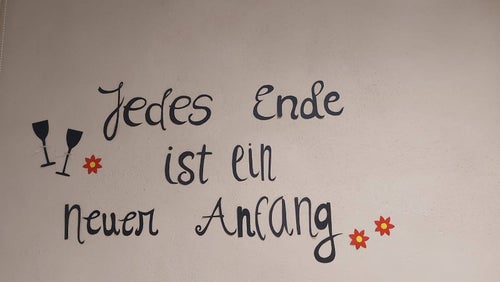 Jedes Ende
ist ein
neuer Anfang